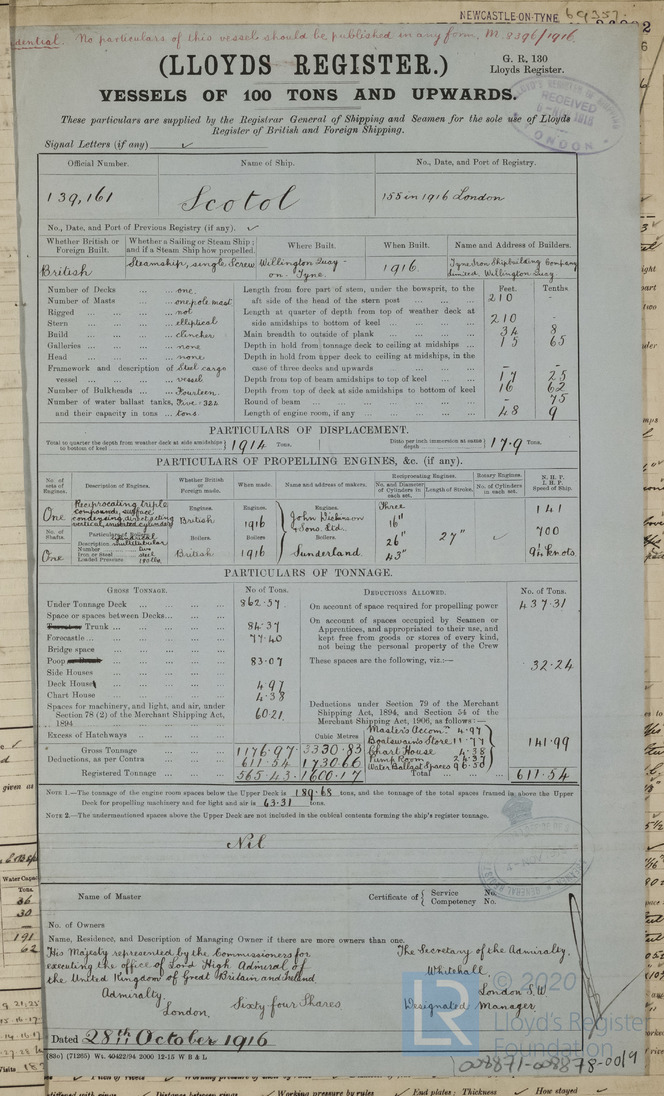 NEWCASTLE-ON-TYNE 69357.
No particulars of this vessel should be published in any form. M. 8396/1916
(LLOYDS REGISTER.)
G. R. 130
Lloyds Register.
VESSELS OF 100 TONS AND UPWARDS.
These particulars are supplied by the Registrar General of Shipping and Seamen for the sole use of Lloyds
Register of British and Foreign Shipping.
Signal Letters (if any) ✓
Official Number. Name of Ship. No., Date, and Port of Registry.
139,161 Scotol 155 in 1916 London
No., Date, and Port of Previous Registry (if any). ✓
Whether British or Foreign Built. Whether a Sailing or Steam Ship; and if a Steam Ship how propelled. Where Built. When Built. Name and Address of Builders.
British Steamship, single Screw Wellington Quay - on - Tyne. 1916. Tyne Iron Shipbuilding Company Limited, Willington Quay
Number of Decks ... one
Number of Masts ... one pole mast
Rigged ... not
Stern ... elliptical
Build ... clincher
Galleries ... none
Head ... none
Framework and description of vessel ... Steel cargo vessel
Number of Bulkheads ... Fourteen.
Number of water ballast tanks, and their capacity in tons ... Five: 322 tons.
Feet. Tenths.
Length from fore part of stem, under the bowsprit, to the aft side of the head of the stern post ... 210 -
Length at quarter of depth from top of weather deck at side amidships to bottom of keel ... 210 -
Main breadth to outside of plank ... 34 8
Depth in hold from tonnage deck to ceiling at midships ... 15 65
Depth in hold from upper deck to ceiling at midships, in the case of three decks and upwards ... - -
Depth from top of beam amidships to top of keel ... 17 25
Depth from top of deck at side amidships to bottom of keel 16 62
Round of beam ... - 75
Length of engine room, if any ... 48 9
PARTICULARS OF DISPLACEMENT.
Total to quarter the depth from weather deck at side amidships to bottom of keel 1914 Tons. Ditto per inch immersion at same depth 17.9 Tons.
PARTICULARS OF PROPELLING ENGINES, &c. (if any).
No. of sets of Engines. Description of Engines. Whether British or Foreign made. When made. Name and address of makers. Reciprocating Engines. No. and Diameter of Cylinders in each set. Length of Stroke. Rotary Engines. No. of Cylinders in each set. N. H. P. I. H. P. Speed of Ship.
One Reciprocating triple compound, surface condensing, direct acting vertical, inverted cylinders
Engines. British Engines. 1916 Engines. John Dickinson & Sons. Ltd. Three 16" 26" 43" 27" ✓ 141 700 9½ knots
No. of Shafts. Particulars of Boilers.
One Description multitubular
Number two
Iron or Steel steel
Loaded Pressure 180 lbs.
Boilers. British Boilers 1916 Boilers. Sunderland.
PARTICULARS OF TONNAGE.
GROSS TONNAGE. No of Tons. DEDUCTIONS ALLOWED. No. of Tons.
Under Tonnage Deck ... 862.57
Space or spaces between Decks ...
Trunk ... 84.37
Forecastle ... 77.40
Bridge space
Poop ... 83.07
Side Houses
Deck House ... 4.97
Chart House ... 4.38
Spaces for machinery, and light, and air, under Section 78 (2) of the Merchant Shipping Act, 1894 ... 60.21
Excess of Hatchways ...
Cubic Metres
Gross Tonnage 1176.97 3330.83
Deductions, as per Contra 611.54 1730.66
Registered Tonnage 565.43 1600.17
On account of space required for propelling power 437.31
On account of spaces occupied by Seamen or Apprentices, and appropriated to their use, and kept free from goods or stores of every kind, not being the personal property of the Crew
These spaces are the following, viz.:— 32.24
Deductions under Section 79 of the Merchant Shipping Act, 1894, and Section 54 of the Merchant Shipping Act, 1906, as follows:—
Master's Accom. 4.97
Boatswain's Store 11.77
Chart House 4.38
Pump Room 24.37
Water Ballast Spaces 96.50
141.99
Total 611.54
NOTE 1.—The tonnage of the engine room spaces below the Upper Deck is 189.68 tons, and the tonnage of the total spaces framed in above the Upper
Deck for propelling machinery and for light and air is 63.31 tons.
NOTE 2.—The undermentioned spaces above the Upper Deck are not included in the cubical contents forming the ship's register tonnage.
Nil
Name of Master Certificate of { Service No. Competency No.
No. of Owners
Name, Residence, and Description of Managing Owner if there are more owners than one.
His Majesty represented by the Commissioners for
executing the office of Lord High Admiral of
the United Kingdom of Great Britain and Ireland
Admiralty
London. Sixty four Shares
The Secretary of the Admiralty.
Whitehall
London S.W
Designated Manager
Dated 28th October 1916
(83c) (71265) Wt. 40422/94 2000 12-15 W B & L
© 2020
Lloyd's Register
Foundation
LR
008871-008878-0019